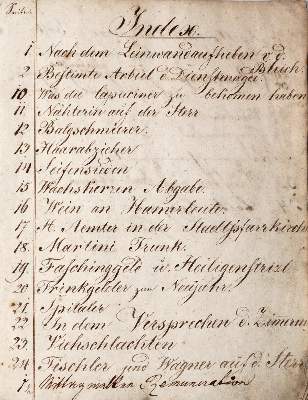 Seite
Index.
1 Nach dem Leinwandaufheben v. d. Bleich
2 Bestimte Arbeit d. Dienstmägde
10 Was die Capuciner zu bekomen haben
11 Nähterin auf der Sterr
12 Balgschmierer.
13 Haarabzieher
14 Seifensieden
15 Wachskerzen Abgabe.
16 Wein an Hamerleute.
17 H. Aemter in der Stadtpfarrkirche
18 Martini Trunk.
19 Faschinggeld u. Heiligenstrizl
20 Trinkgelder zum Neujahr.
21 Spitaler
22 In dem Versprechen d. Zimerm
23 Viehschlachten
24 Tischler und Wagner auf d. Sterr
Remuneration